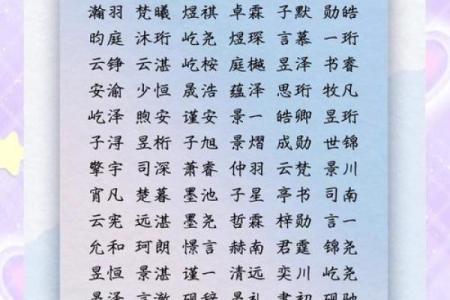 瀚羽 梵曦 煜祺 卓霖 子默 勋皓
昀庭 沐珩 屹尧 煜琛 言慕 一珩
云铮 云湛 屹桉 庭樾 昱泽 书睿
安渝 少恒 晟浩 蕴泽 思珩 牧凡
屹泽 煦安 谨安 景一 皓卿 昱珩
子浔 昱桁 子旭 景熠 成勋 世锦
擎宇 司深 萧睿 仲羽 云梵 景川
宵凡 楚暮 墨池 子星 亭书 司南
云宪 远湛 墨尧 哲霖 梓勋 言一
允和 珂朗 憬言 赫南 君霆 锦尧
昱恒 景湛 谨一 清远 奕川 屹尧
景泽 言澈 砚辞 景礼 书初 砚驰